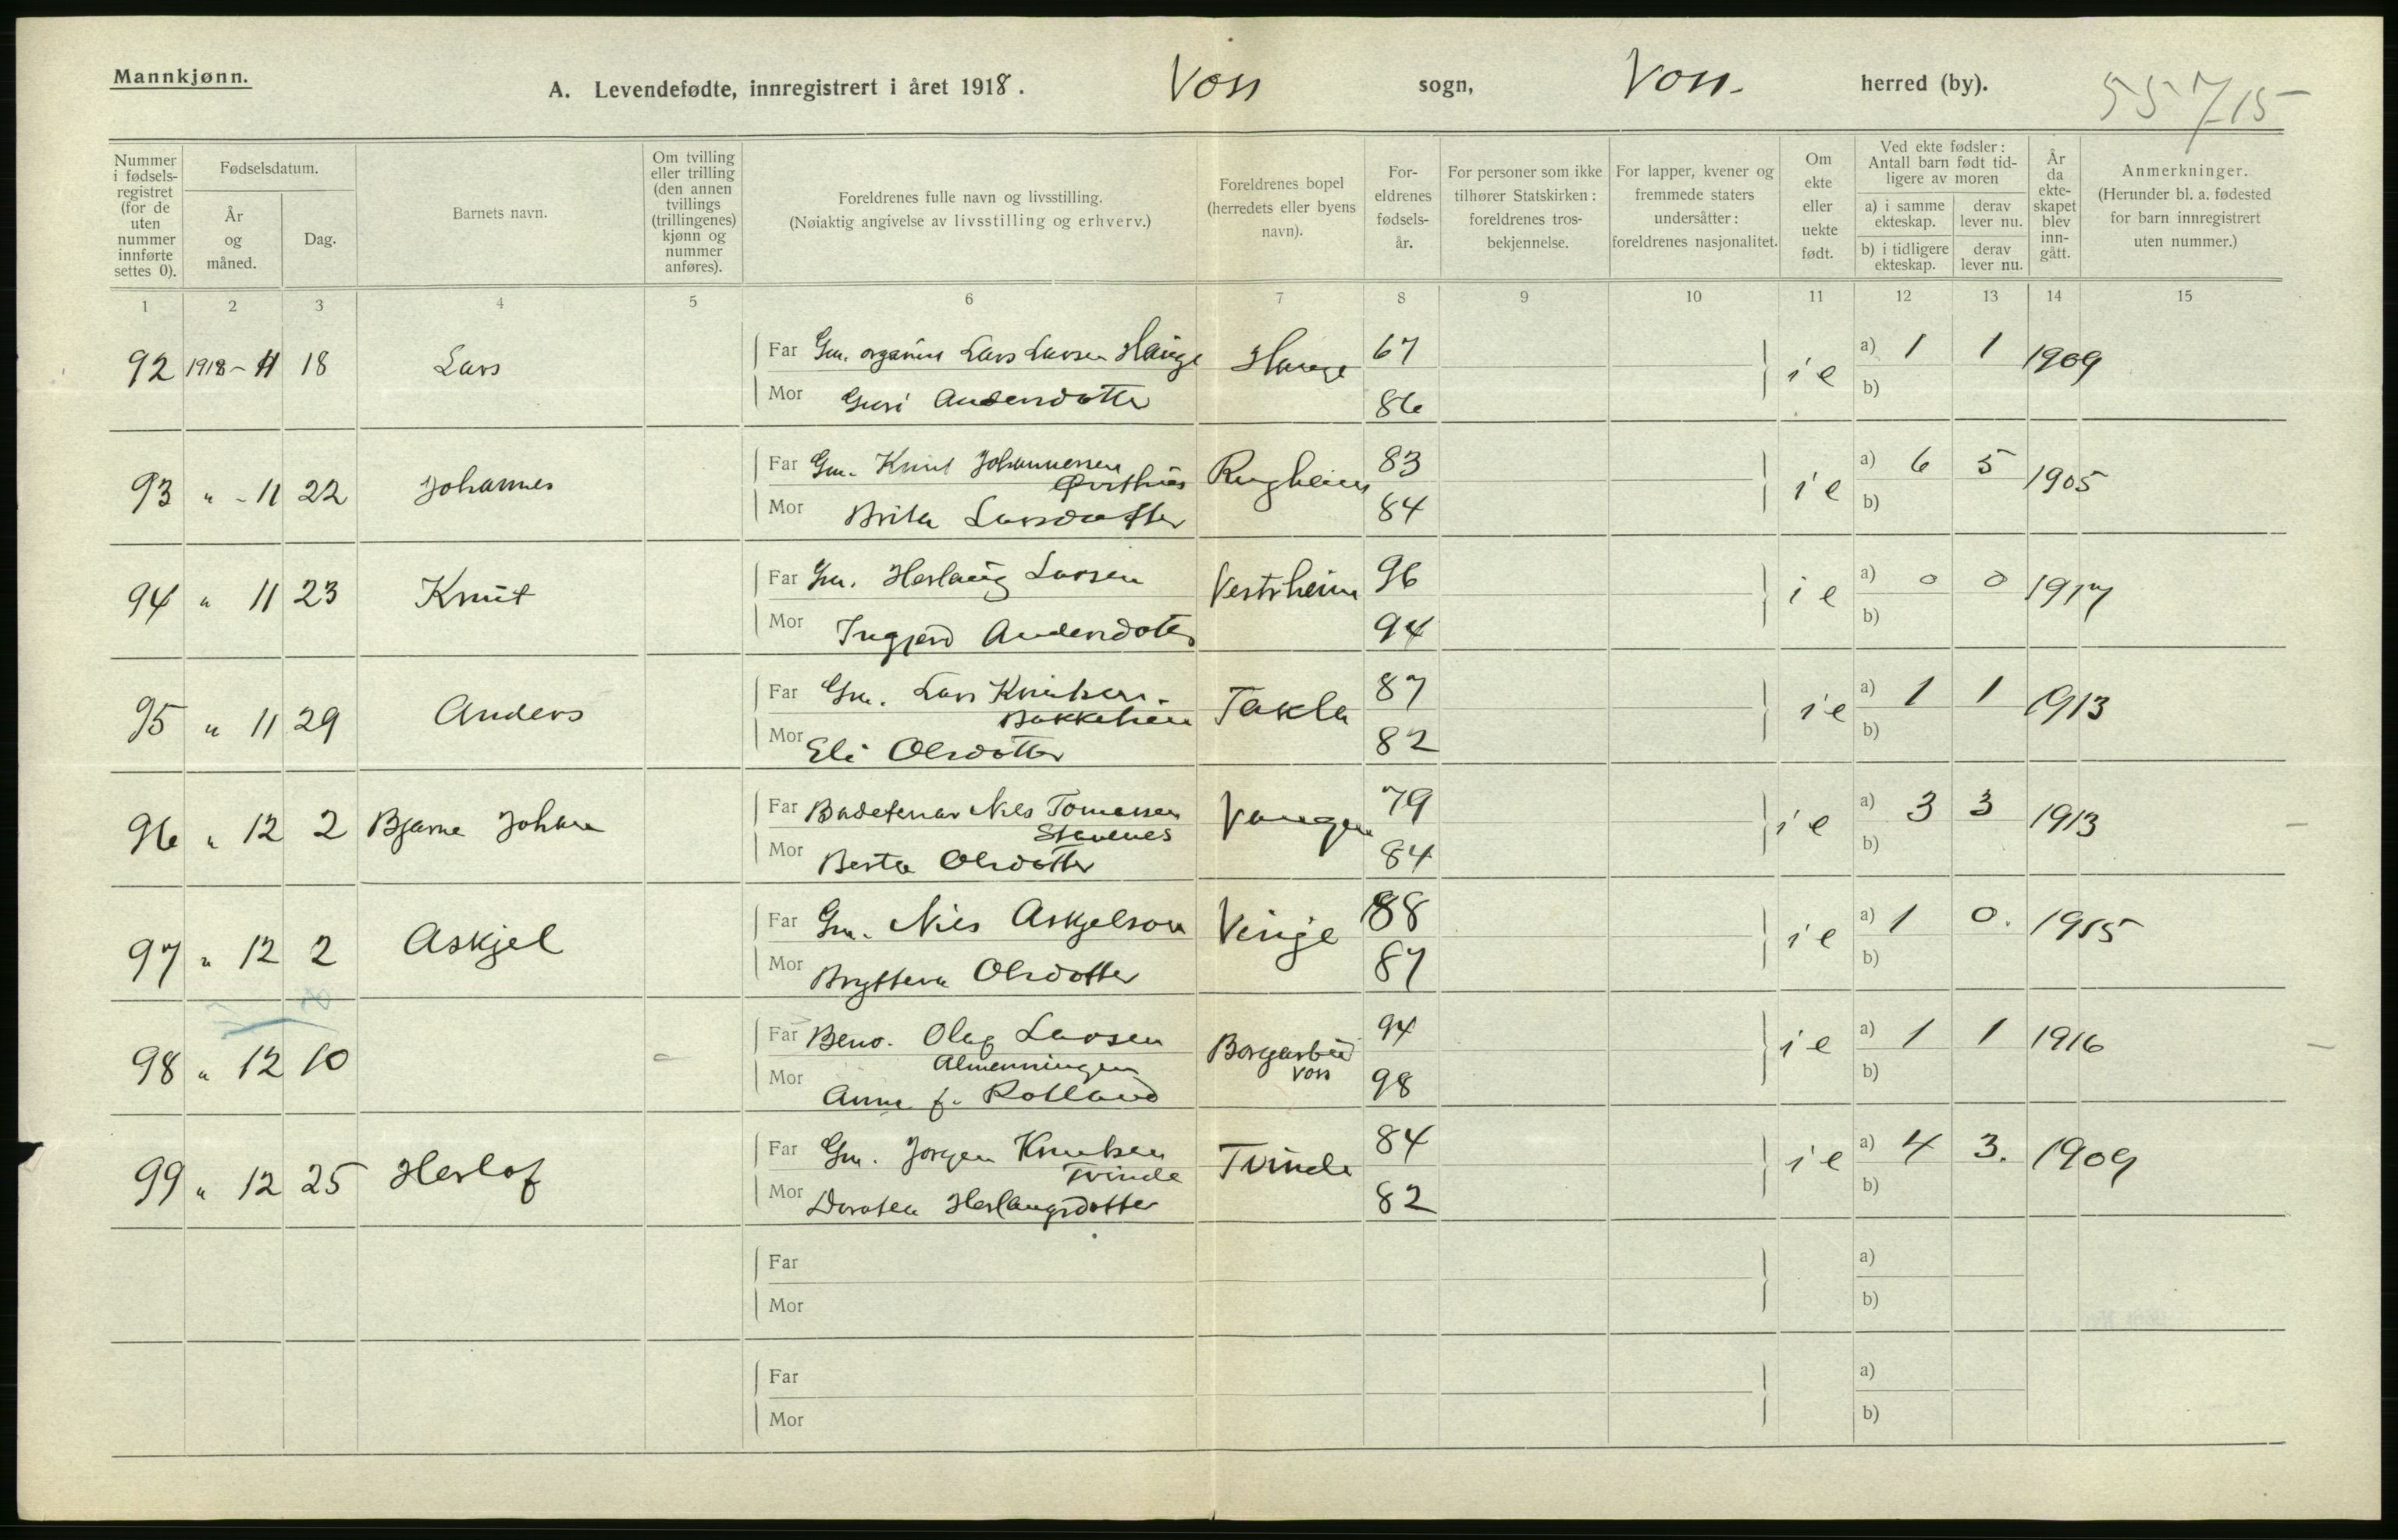 Mannkjønn.
A. Levendefødte, innregistrert i året 1918. Voss sogn, Voss. herred (by). 55715
Nummer i fødselsregistret (for de uten nummer innførte settes 0).
Fødselsdatum.
År og måned.
Dag.
Barnets navn.
Om tvilling eller trilling (den annen tvillings (trillingenes) kjønn og nummer anføres).
Foreldrenes fulle navn og livsstilling.
(Nøiaktig angivelse av livsstilling og erhverv.)
Foreldrenes bopel (herredets eller byens navn).
Foreldrenes fødselsår.
For personer som ikke tilhører Statskirken: foreldrenes trosbekjennelse.
For lapper, kvener og fremmede staters undersåtter: foreldrenes nasjonalitet.
Om ekte eller uekte født.
Ved ekte fødsler: Antall barn født tidligere av moren
a) i samme ekteskap. derav lever nu.
b) i tidligere ekteskap. derav lever nu.
År da ekteskapet blev inngått.
Anmerkninger.
(Herunder bl. a. fødested for barn innregistrert uten nummer.)
1 2 3 4 5 6 7 8 9 10 11 12 13 14 15
92 1918-11 18 Lars Far Gm. organist Lars Larsen Hauge Hauge 67 i e a) 1 1 1909
Mor Guri Andersdotter 86 b)
93 " - 11 22 Johannes Far Gm. Knut Johannessen Ringheim 83 i e a) 6 5 1905
Mor Brita Larsdotter 84 b)
94 " 11 23 Knut Far Gm. Herlaug Larsen Vestrheim 96 i e a) 0 0 1917
Mor Ingjerd Andersdotter 94 b)
95 " 11 29 Anders Far Gm. Lars Knutsen Takla 87 i e a) 1 1 1913
Bakkethun
Mor Eli Olsdotter 82 b)
96 " 12 2 Bjarne Johan Far Badetenar Nils Tomassen Vangen 79 i e a) 3 3 1913 -
Stavenes
Mor Berta Olsdotter 84 b)
97 " 12 2 Askjel Far Gm. Nils Askjelson Vinje 88 i e a) 1 0. 1915
Mor Brytteva Olsdotter 87 b)
98 " 12 10 - Far Olag Larsen 94 i e a) 1 1 1916 -
Almenningen Voss
Mor Anna f. Rolland 98 b)
99 " 12 25 Herlof Far Gm. Jorgen Knutsen Tvinde 84 i e a) 4 3. 1909
Tvinde
Mor Dorotea Herlaugsdotter 82 b)
Far a)
Mor b)
Far a)
Mor b)